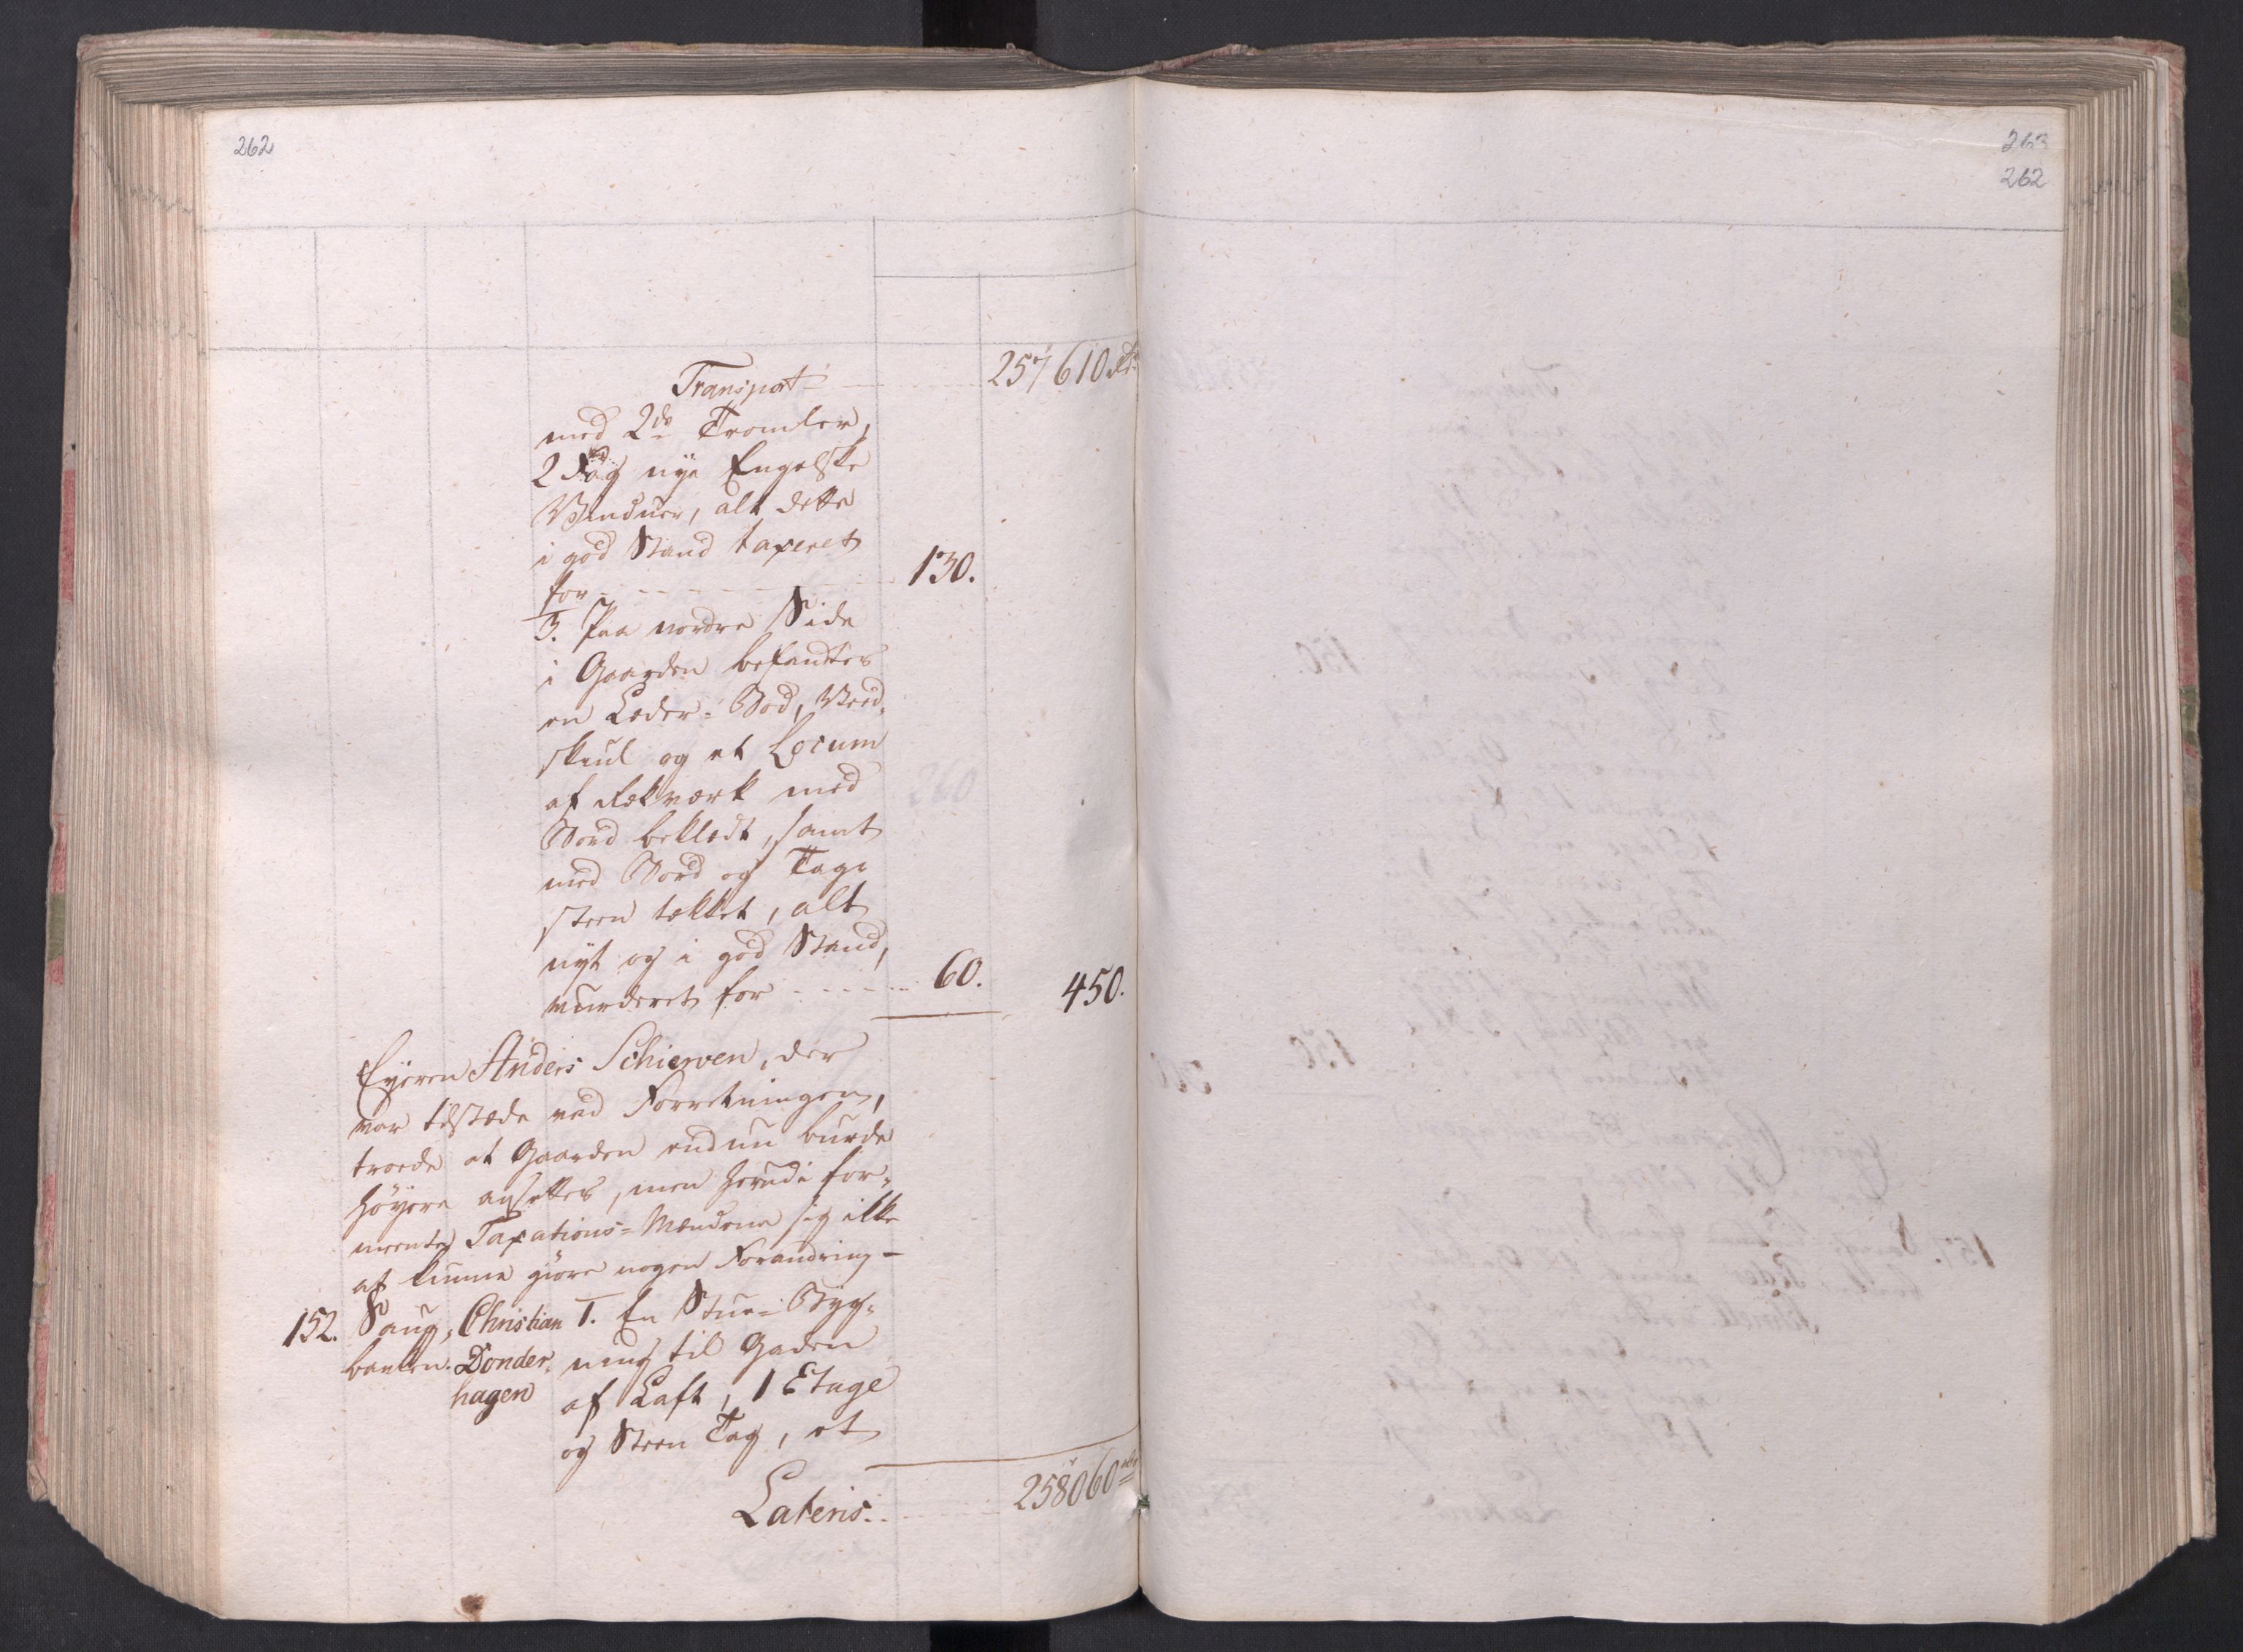 262
263
262
Transport 257610 Rd
med 2de Tromler,
2 Fag nye Engelske
Vinduer, alt dette
i god Stand taxeret
for 130.
3. Paa nordre Side
i Gaarden befandtes
en Læder-Bod, Veed-
skuul og et Locum
af Rekværk med
Bord beklædt, samt
med Bord og Tag-
steen tækket, alt
nyt og i god Stand,
vurderet for 60. 450.
Eyeren Anders Schierven, der
var tilstæde ved Forretningen,
troede at Gaarden endnu burde
høyere ansettes, men herudi for-
meente Taxations-Mændene sig ikke
at kunne giøre nogen Forandring -
152. Saug- Christian 1. En Stue-Byg-
banken. Donder- ning til Gaden
hagen af Laft, 1 Etage
og Steen Tag, et
Lateris 258060 rdr